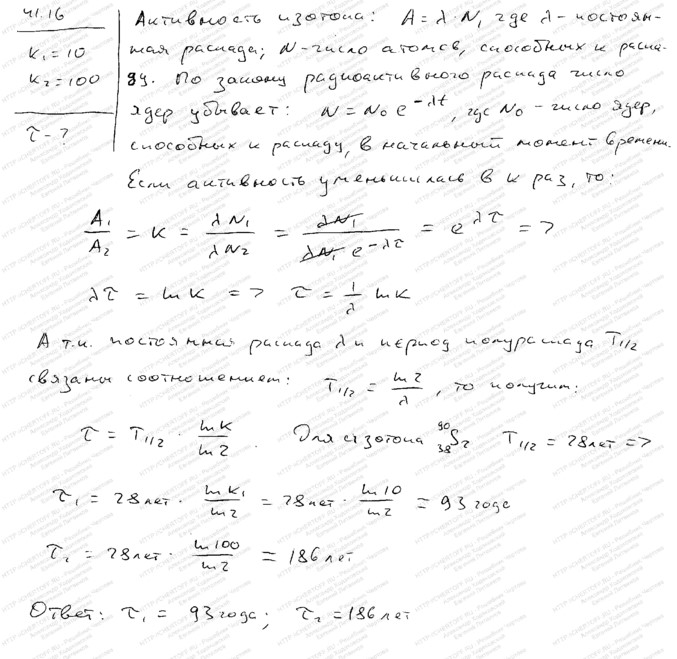 41.16
K₁ = 10
K₂ = 100
τ - ?
Активность изотопа: A = λ·N, где λ - постоян-
ная распада; N - число атомов, способных к распа-
ду. По закону радиоактивного распада число
ядер убывает: N = N₀ e^(-λt), где N₀ - число ядер,
способных к распаду, в начальный момент времени.
Если активность уменьшилась в к раз, то:
A₁/A₂ = K = λN₁/λN₂ = λN₁/(λN₁ e^(-λτ)) = e^(λτ) =>
λτ = ln K => τ = 1/λ ln K
А т.к. постоянная распада λ и период полураспада T₁/₂
связаны соотношением: T₁/₂ = ln 2/λ, то получим:
τ = T₁/₂ · ln K/ln 2. Для изотопа ⁹⁰₃₈Sr T₁/₂ = 28 лет =>
τ₁ = 28 лет · ln K₁/ln 2 = 28 лет · ln 10/ln 2 = 93 года
τ₂ = 28 лет · ln 100/ln 2 = 186 лет
Ответ: τ₁ = 93 года; τ₂ = 186 лет